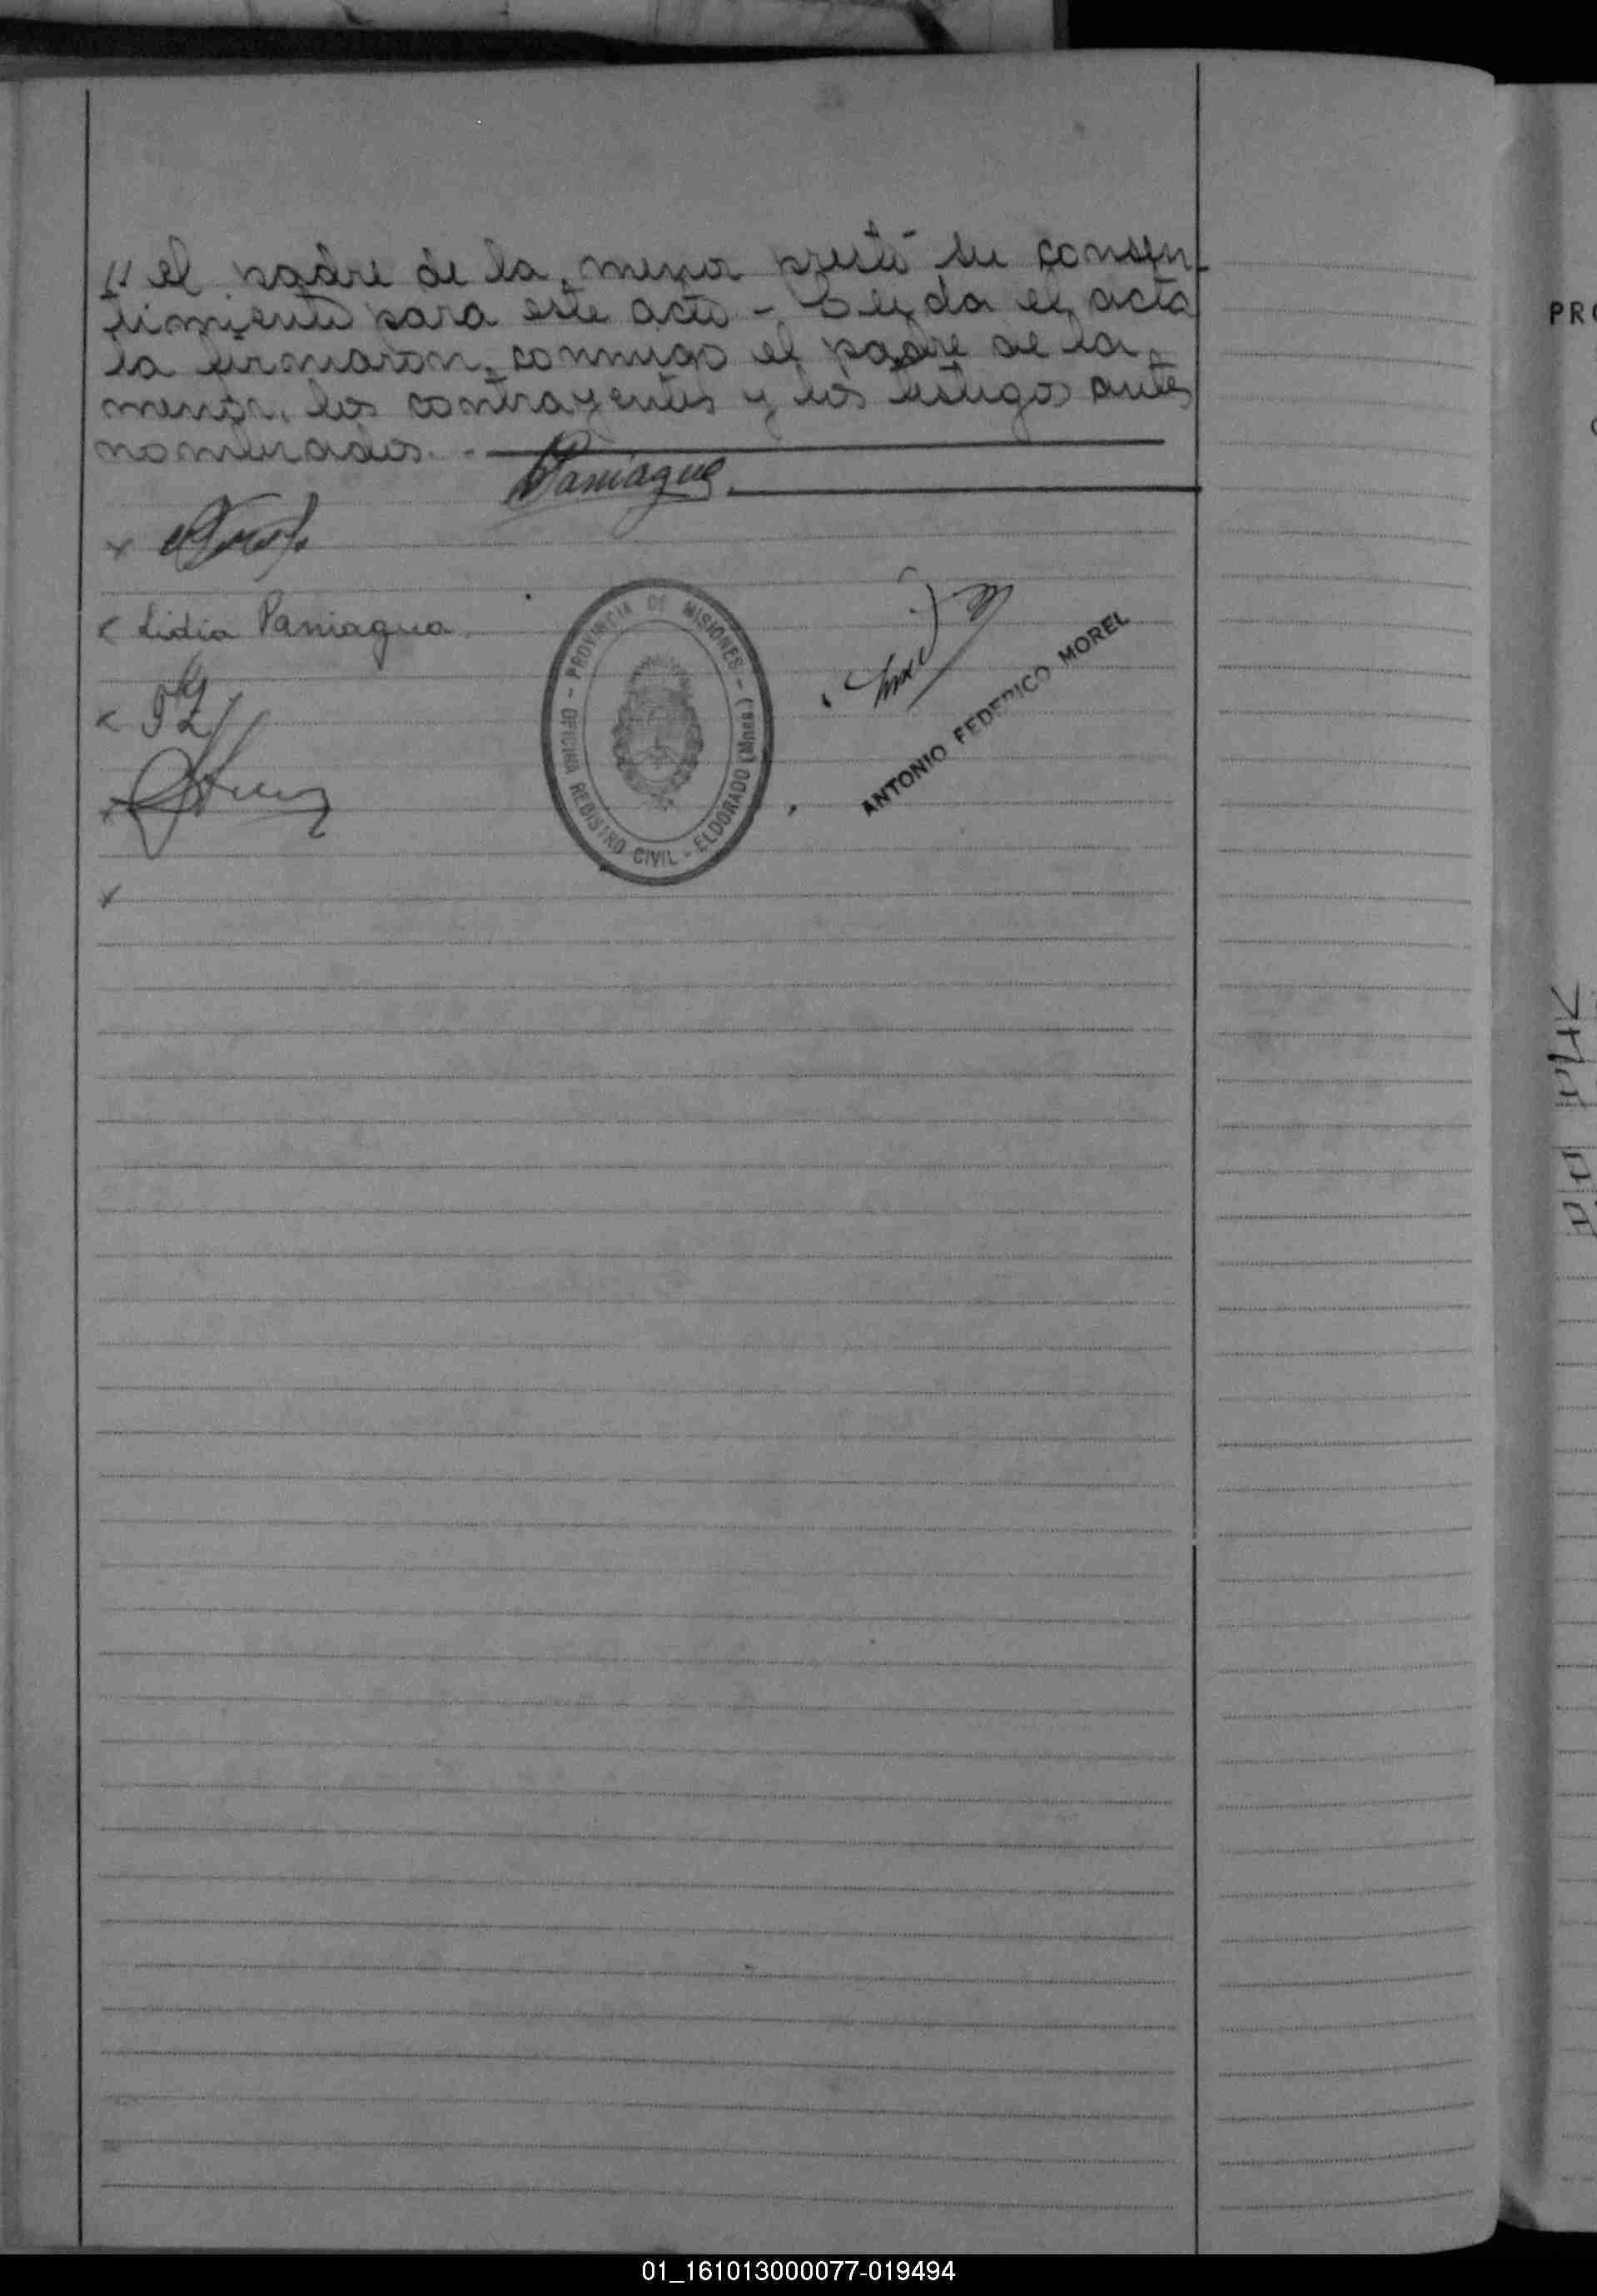 // el padre de la menor prestó su consen-
timiento para este acto - Leída el acta
la firmaron, conmigo el padre de la
menor, los contrayentes y los testigos antes
nombrados. -
Paniagua
x
x Lidia Paniagua
x
x
x
PROVINCIA DE MISIONES - (Mnes.)
OFICINA REGISTRO CIVIL - ELDORADO
ANTONIO FEDERICO MOREL
PR
01_161013000077-019494